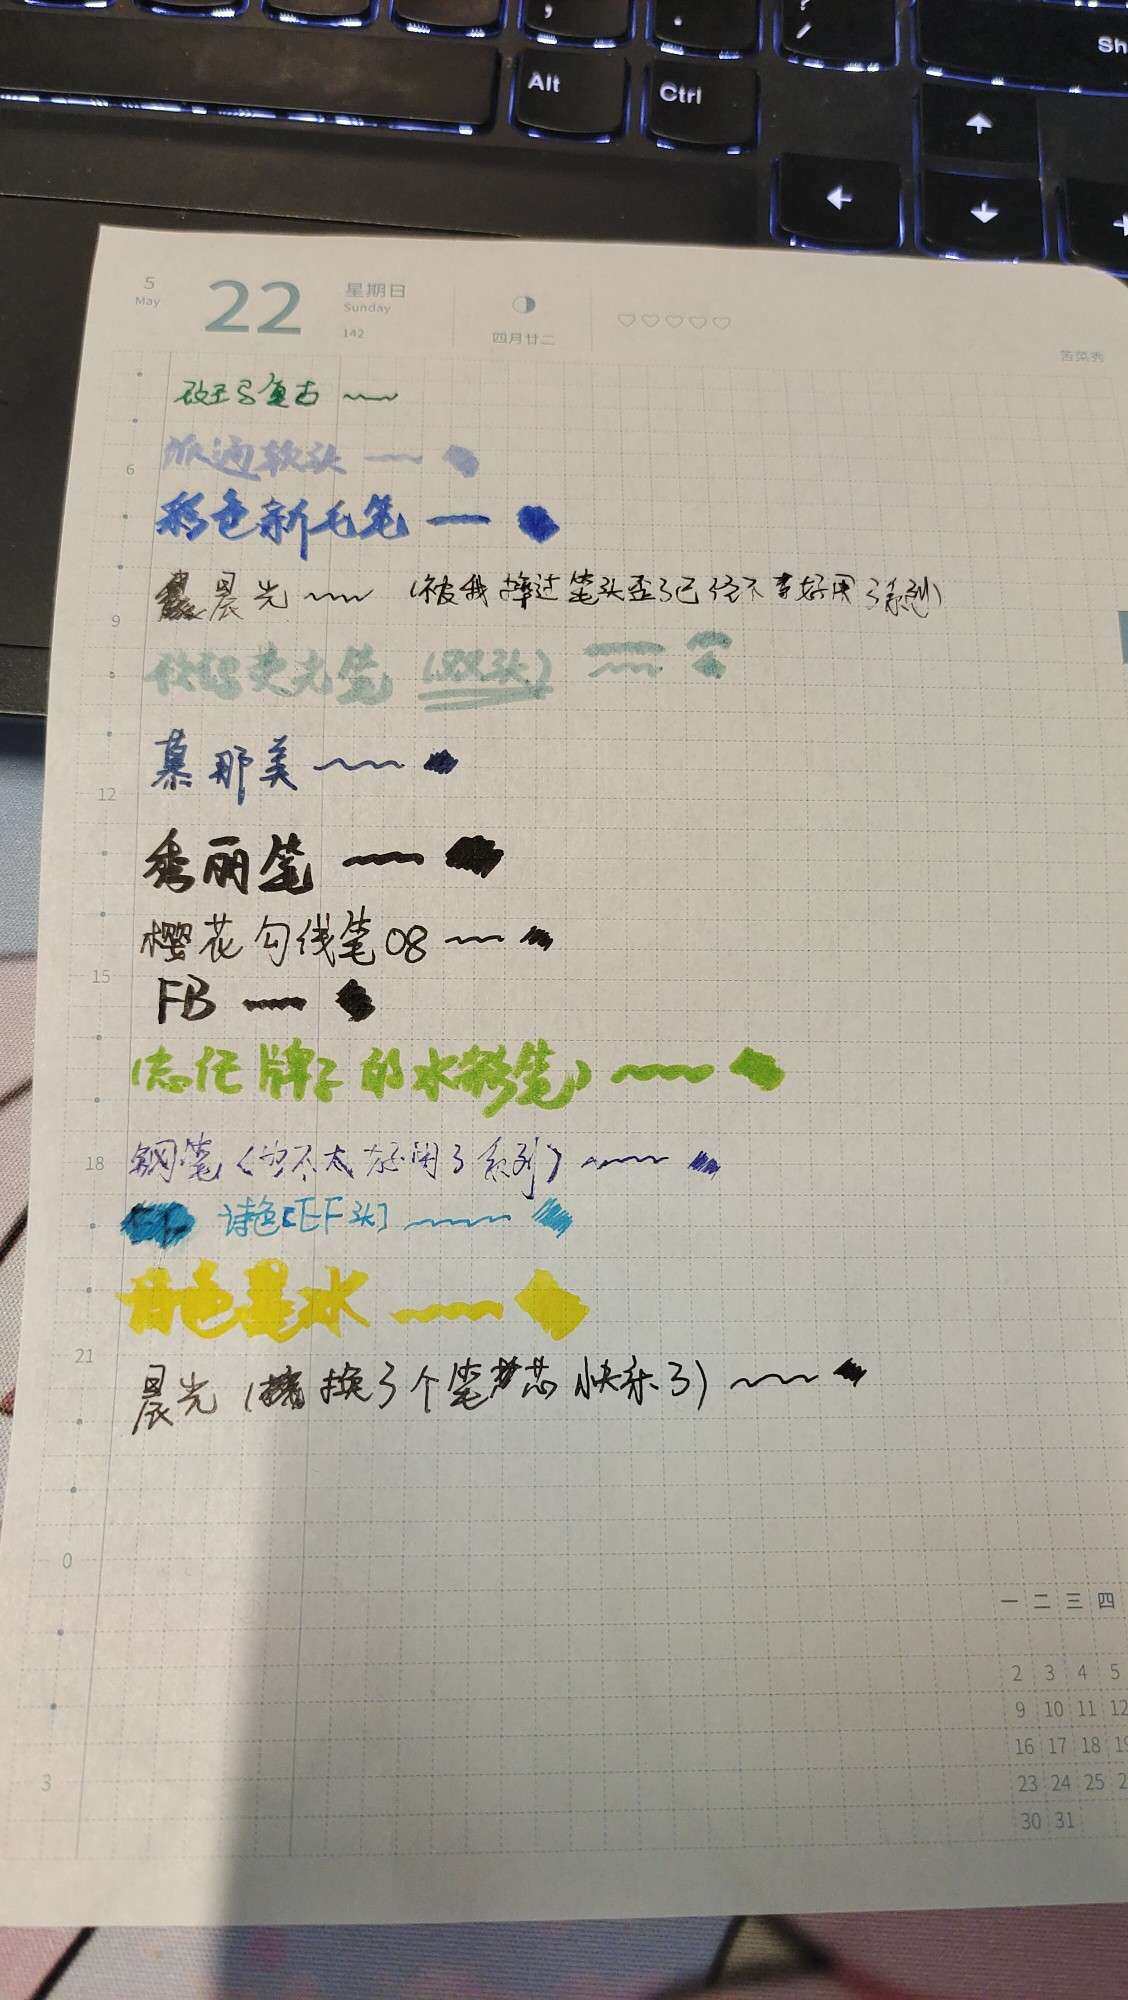 Alt
Ctrl
5
May
22
星期日
Sunday
142
四月廿二
斑马复古
6
派通软头
彩色新毛笔
晨光 (被我摔过笔头歪了已经不太好用了系列)
9
荧光笔 (双头)
慕那美
12
秀丽笔
樱花勾线笔08
15
FB
牌子的水彩笔)
18
钢笔 (也不太好用了系列)
诗色[EF头]
色墨水
21
晨光 (换了个笔芯 快乐了)
0
一 二 三 四
2 3 4 5
9 10 11 12
16 17 18 19
3
23 24 25
30 31